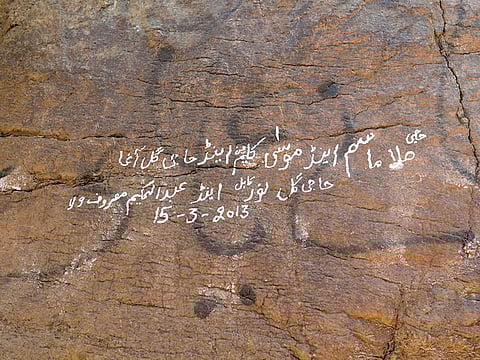 حاجی ملا ماسم اینڈ موسیٰ کلیم اینڈ حاجی گل آغا
حاجی گل نور اینڈ عبدالحکیم معروف ملا
15-3-2013